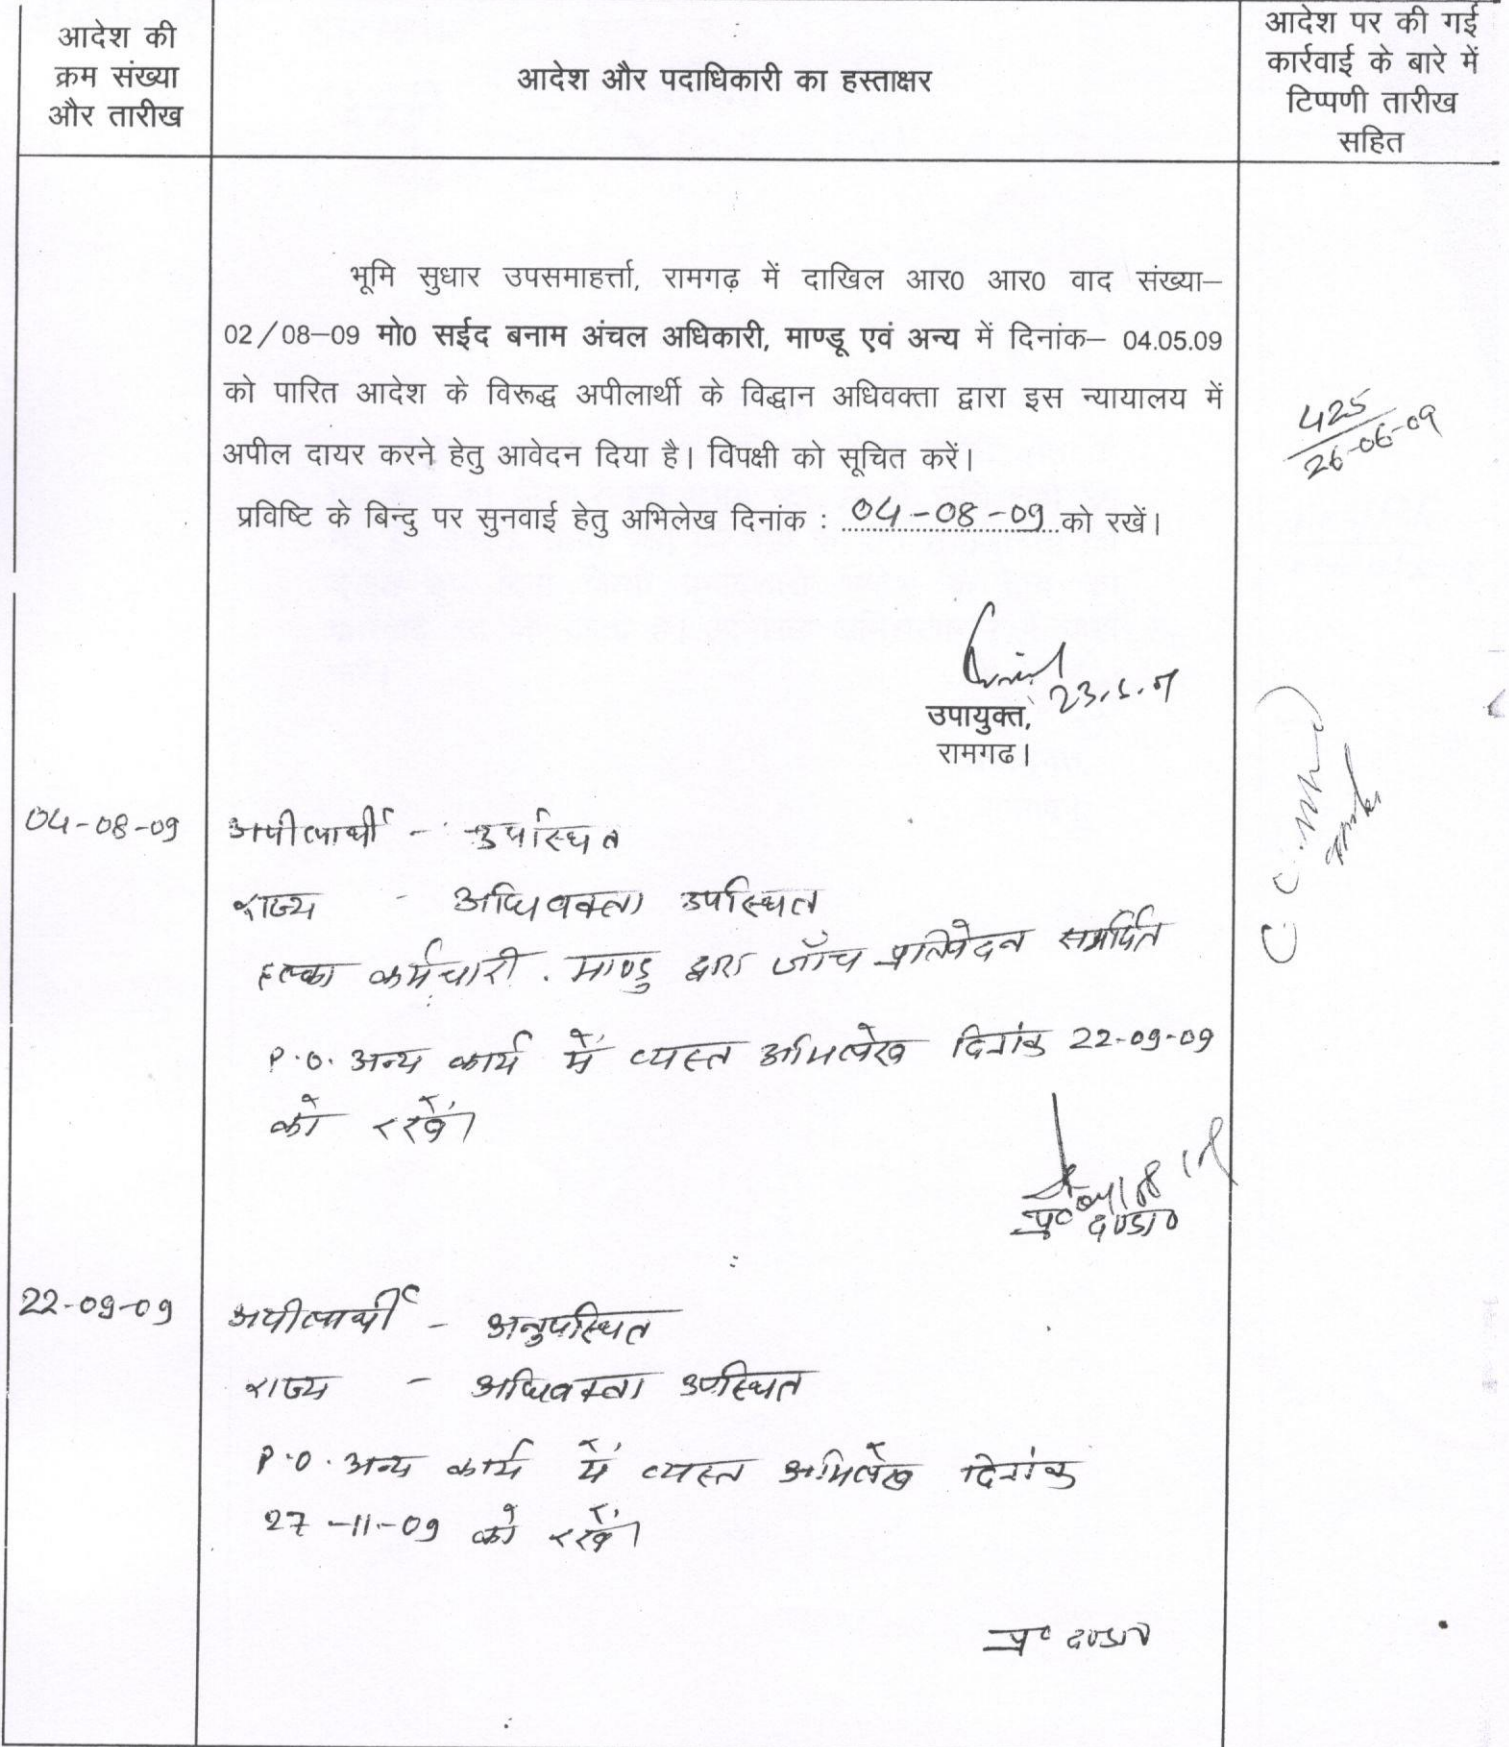 आदेश की
क्रम संख्या
और तारीख
आदेश और पदाधिकारी का हस्ताक्षर
आदेश पर की गई
कार्रवाई के बारे में
टिप्पणी तारीख
सहित
भूमि सुधार उपसमाहर्त्ता, रामगढ़ में दाखिल आर0 आर0 वाद संख्या–
02/08–09 मो0 सईद बनाम अंचल अधिकारी, माण्डू एवं अन्य में दिनांक– 04.05.09
को पारित आदेश के विरूद्ध अपीलार्थी के विद्धान अधिवक्ता द्वारा इस न्यायालय में
अपील दायर करने हेतु आवेदन दिया है। विपक्षी को सूचित करें।
प्रविष्टि के बिन्दु पर सुनवाई हेतु अभिलेख दिनांक : 04-08-09 को रखें।
425
26-06-09
उपायुक्त,
रामगढ।
04-08-09
अपीलार्थी - उपस्थित
राज्य - अधिवक्ता उपस्थित
हल्का कर्मचारी. माण्डु द्वारा जाँच प्रतिवेदन समर्पित
P.O. अन्य कार्य में व्यस्त अभिलेख दिनांक 22-09-09
को रखें।
प्र० दण्डा०
22-09-09
अपीलार्थी - अनुपस्थित
राज्य - अधिवक्ता उपस्थित
P.O. अन्य कार्य में व्यस्त अभिलेख दिनांक
27-11-09 को रखें।
प्र० दण्डा०